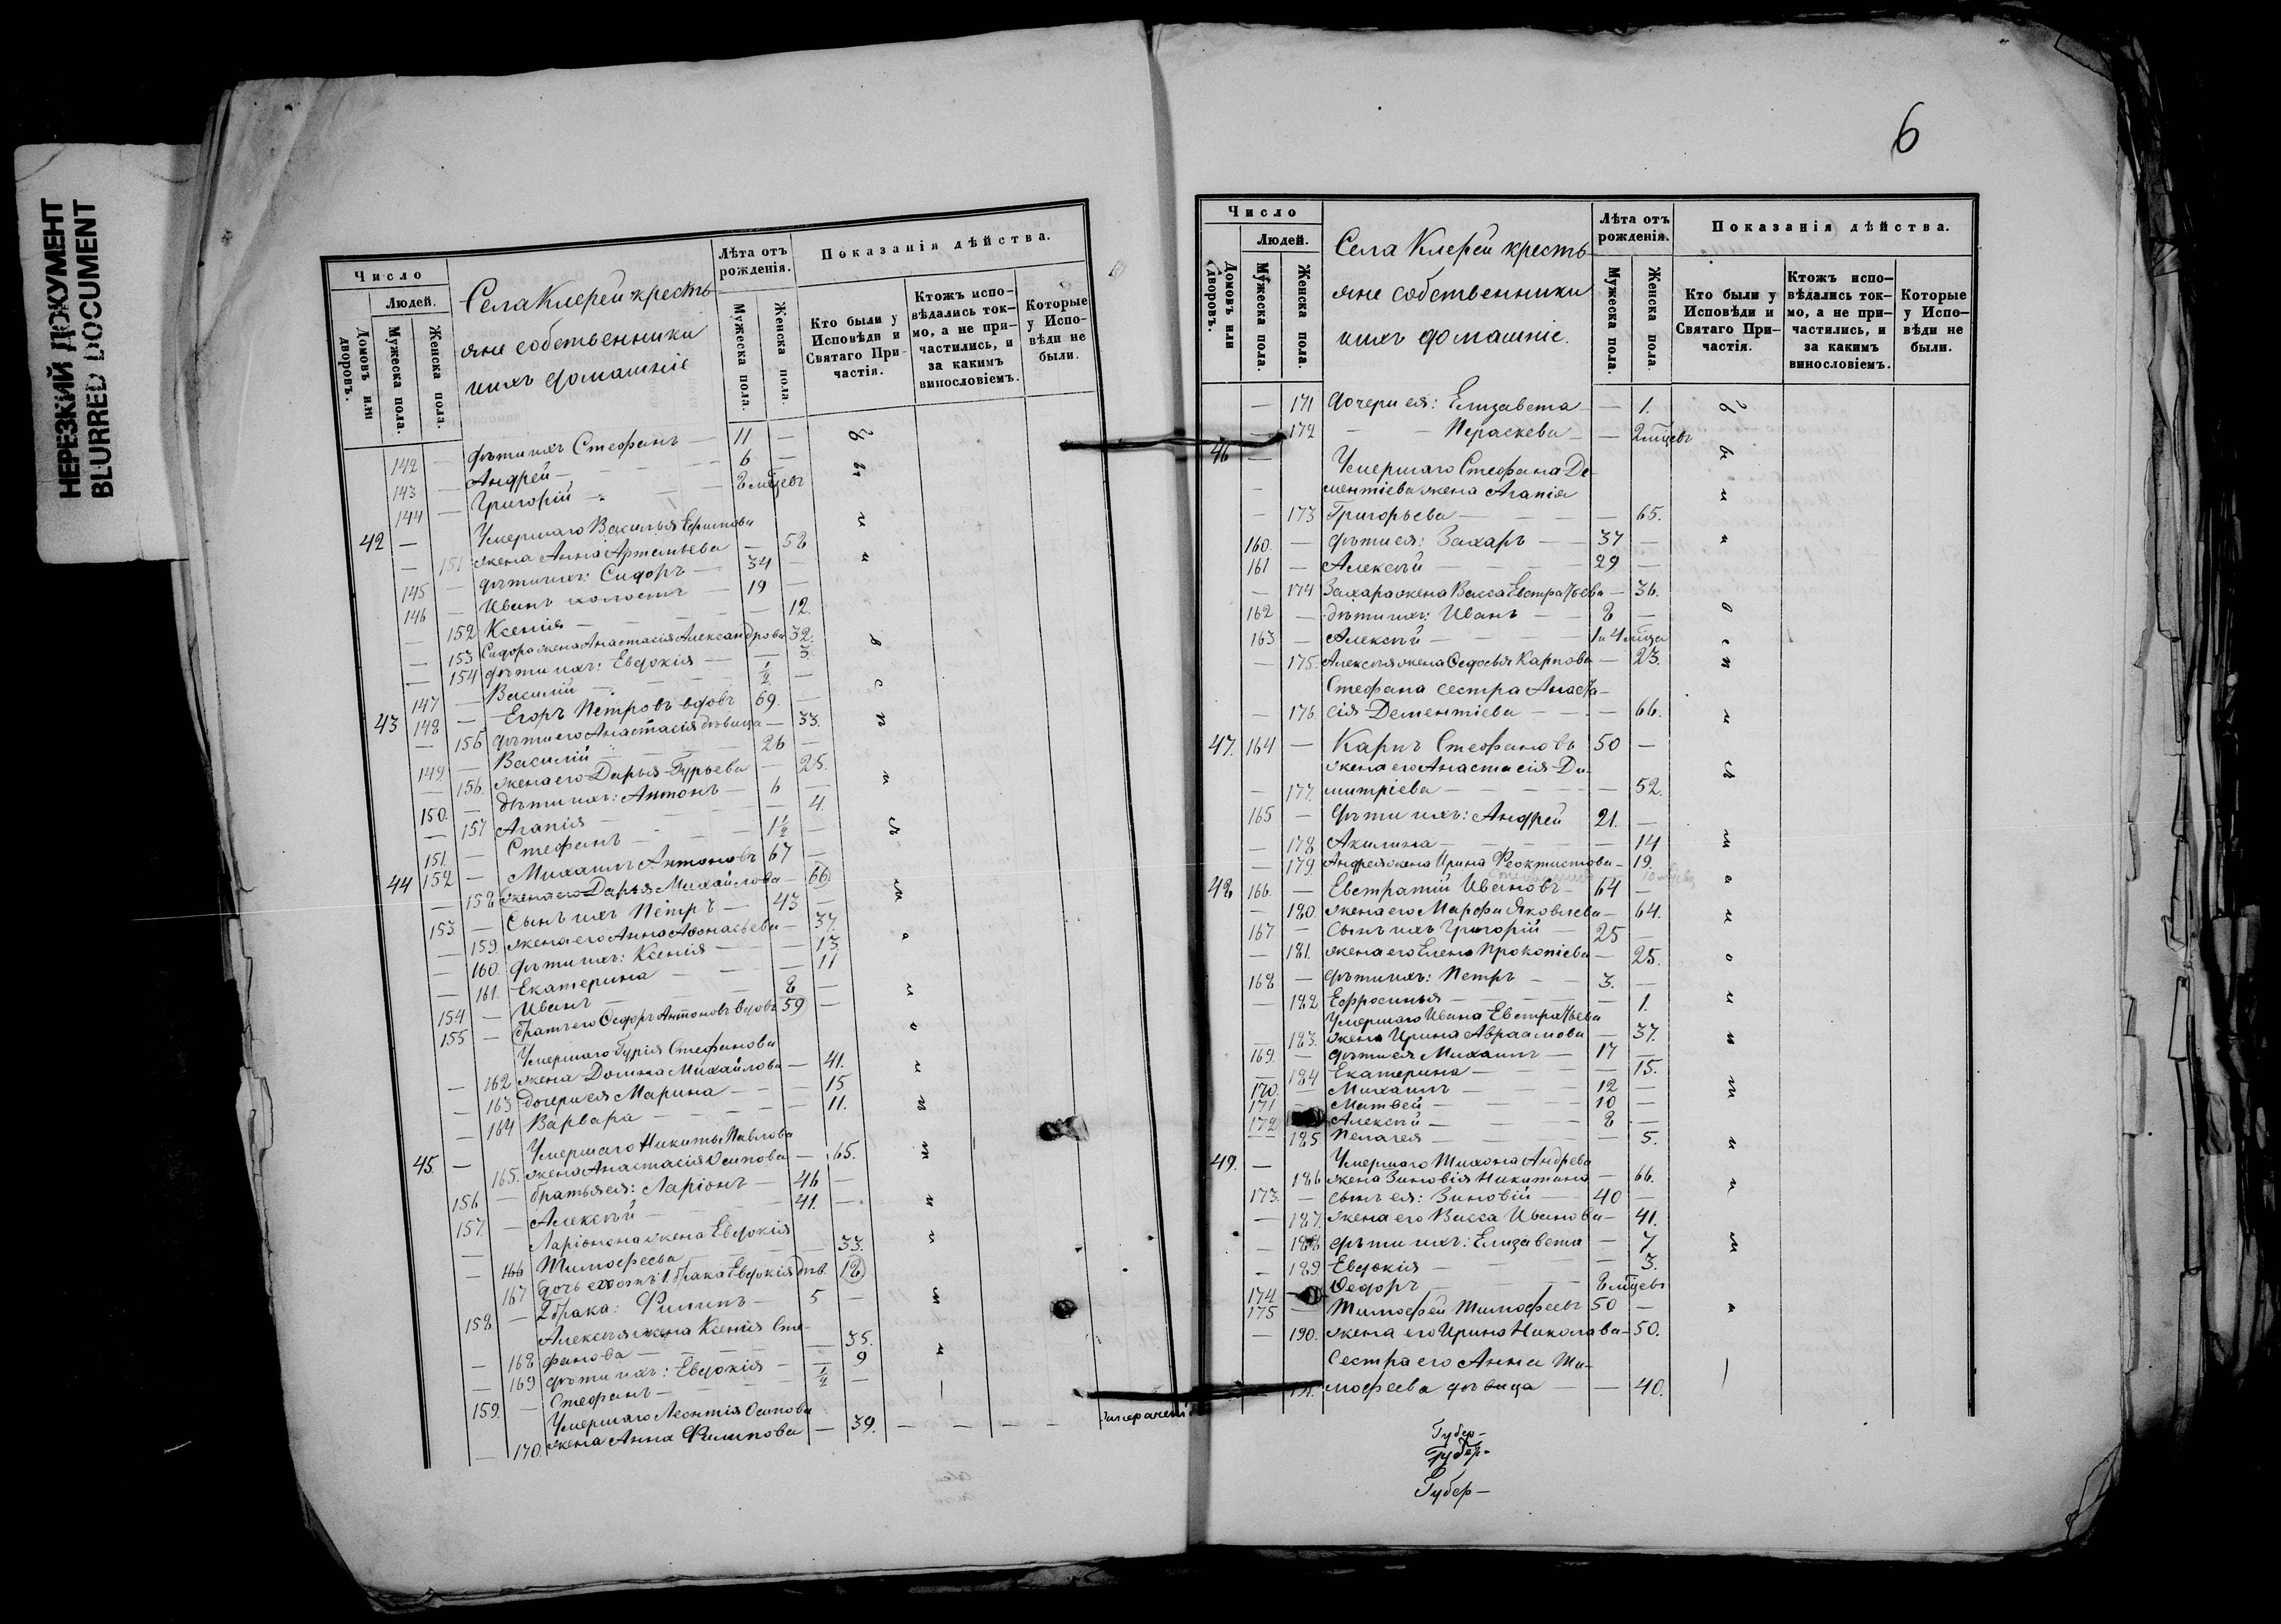 НЕРЕЗКИЙ ДОКУМЕНТ
BLURRED DOCUMENT
Число
Людей.
Домовъ или дворовъ.
Мужеска пола.
Женска пола.
Села Клерей кресть-
яне собственники
и ихъ домашніе
Лѣта отъ рожденія.
Мужеска пола.
Женска пола.
Показанія дѣйства.
Кто были у Исповѣди и Святаго При-частія.
Ктожъ испо-вѣдались ток-мо, а не при-частились, и за какимъ винословіемъ.
Которые у Испо-вѣди не были.
142 — дѣти ихъ Стефанъ — 11 —
143 — Андрей — 6 —
144 — Григорій — 8 мѣцевъ
42 — Умершаго Василья Ефимова
— 151 жена Анна Артемьева — 58
145 — дѣти ихъ: Сидоръ — 34 —
146 — Иванъ холостъ — 19 —
— 152 Ксенія — 12.
— 153 Сидора жена Анастасія Александрова 32.
— 154 дѣти ихъ: Евдокія — 3
147 — Василій — ½ —
43 148 — Егоръ Петровъ вдовъ 69. —
— 155 дѣти его Анастасія дѣвица — 33.
149 — Василій — 26 —
— 156. жена его Дарья Гурьева — 25.
150. — дѣти ихъ: Антонъ — 6 —
— 157 Агапія — 4.
151. — Стефанъ — 1½ —
44 152 — Михаилъ Антоновъ 67 —
— 158 жена его Дарья Михайлова — 66
153 — Сынъ ихъ Петръ — 43 —
— 159. жена его Анна Аѳонасьева — 37.
— 160. дѣти ихъ: Ксенія — 13.
— 161. Екатерина — 11
154 — Иванъ — 8 —
155 — братъ его Ѳедоръ Антоновъ вдовъ 59 —
Умершаго Гурія Стефанова
— 162 жена Домна Михайлова — 41.
— 163 дочери ея Марина — 15
— 164 Варвара — 11.
45. — Умершаго Никиты Павлова
165. жена Анастасія Осипова — 65.
156 — братья ея: Ларіонъ — 46 —
157. — Алексѣй — 41. —
— Ларіонона жена Евдокія
— 166 Тимоѳеева — 33.
167 дочь его отъ 1. брака Евдокія дѣв. 18
158 — 2 брака: Филипъ — 5 —
Алексѣя жена Ксенія Сте-
— 168 фанова — 35.
— 169 дѣти ихъ: Евдокія — 9
159. — Стефанъ — ½ —
Умершаго Леонтія Осипова
— 170. жена Анна Филипова — 39. — — —
6
Число
Людей.
Домовъ или дворовъ.
Мужеска пола.
Женска пола.
Села Клерей кресть-
яне собственники
и ихъ домашніе.
Лѣта отъ рожденія.
Мужеска пола.
Женска пола.
Показанія дѣйства.
Кто были у Исповѣди и Святаго При-частія.
Ктожъ испо-вѣдались ток-мо, а не при-частились, и за какимъ винословіемъ.
Которые у Испо-вѣди не были.
— 171 дочери ея: Елизавета — 1.
— 172 — Параскева — 2 мѣцевъ
46 — Умершаго Стефана Де-
— ментіева жена Агапія
— 173 Григорьева — 65.
160. — дѣти ея: Захаръ — 37 —
161 — Алексѣй — 29 —
— 174 Захара жена Васса Евстратьева — 36.
162 — дѣти ихъ: Иванъ — 8 —
163 — Алексѣй — 1 и 4 мѣца
— 175. Алексѣя жена Ѳедосья Карпова — 23.
Стефана сестра Анаста-
— 176 сія Дементіева — 66.
47. 164 — Карпъ Стефановъ 50 —
жена его Анастасія Ди-
— 177. митріева — 52.
165 — дѣти ихъ: Андрей 21. —
— 178 Акилина — 14
— 179. Андрея жена Ирина Феоктистова — 19.
48 166. — Евстратій Ивановъ — 64 —
— 180. жена его Марфа Яковлева — 64.
167 — сынъ ихъ Григорій — 25 —
— 181. жена его Елена Прокопіева — 25.
168 — дѣти ихъ: Петръ — 3. —
— 182 Ефросинья — 1.
Умершаго Ивана Евстратьева
— 183. жена Ирина Авраамова — 37.
169. — дѣти ея Михаилъ — 17 —
— 184 Екатерина — 15.
170. — Михаилъ — 12 —
171 — Матвей — 10 —
172 Алексѣй — 8 —
— 185 Пелагея — 5.
49. — Умершаго Тихона Андрева
186 жена Зиновія Никитина — 66.
173. — сынъ ея: Зиновій — 40 —
— 187. жена его Васса Иванова — 41.
— 188 дѣти ихъ: Елизавета — 7
— 189 Евдокія — 3.
174 — Ѳедоръ — 8 мѣцевъ
175 — Тимоѳей Тимоѳеевъ 50 —
— 190. жена его Ирина Николаева — 50.
Сестра его Анна Ти-
191. моѳеева дѣвица — 40.
Губер-
Губер-
Губер-